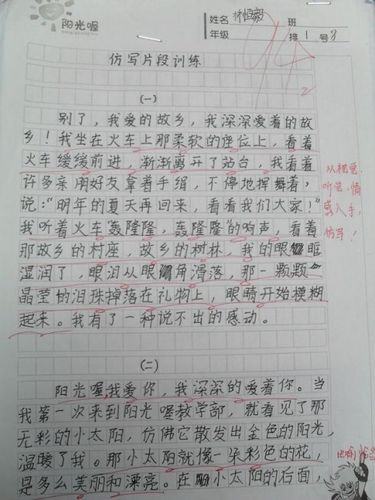 阳光喔
姓名
班
年级
排1号3
仿写片段训练
(一)
别了,我爱的故乡,我深深爱着的故
乡!我坐在火车上那柔软的座位上,看着
火车缓缓前进,渐渐离开了站台,我看着
许多亲朋好友拿着手绢,不停地挥舞着,
说:“明年的夏天再回来,看看我们大家!”
我听着火车轰隆隆,轰隆隆的响声,看着
那故乡的村座,故乡的树林,我的眼眶
湿润了,眼泪从眼角滑落,那一颗颗
晶莹的泪珠掉落在礼物上,眼睛开始模糊
起来。我有了一种说不出的感动。
从视觉、
听觉、情
感入手,
仿写!
(二)
阳光喔我爱你,我深深的爱着你。当
我第一次来到阳光喔教学部,就看见了那
无彩的小太阳,仿佛它散发出金色的阳光,
温暖了我。那小太阳就像一朵彩色的花,
是多么美丽和漂亮。在小太阳的右面,